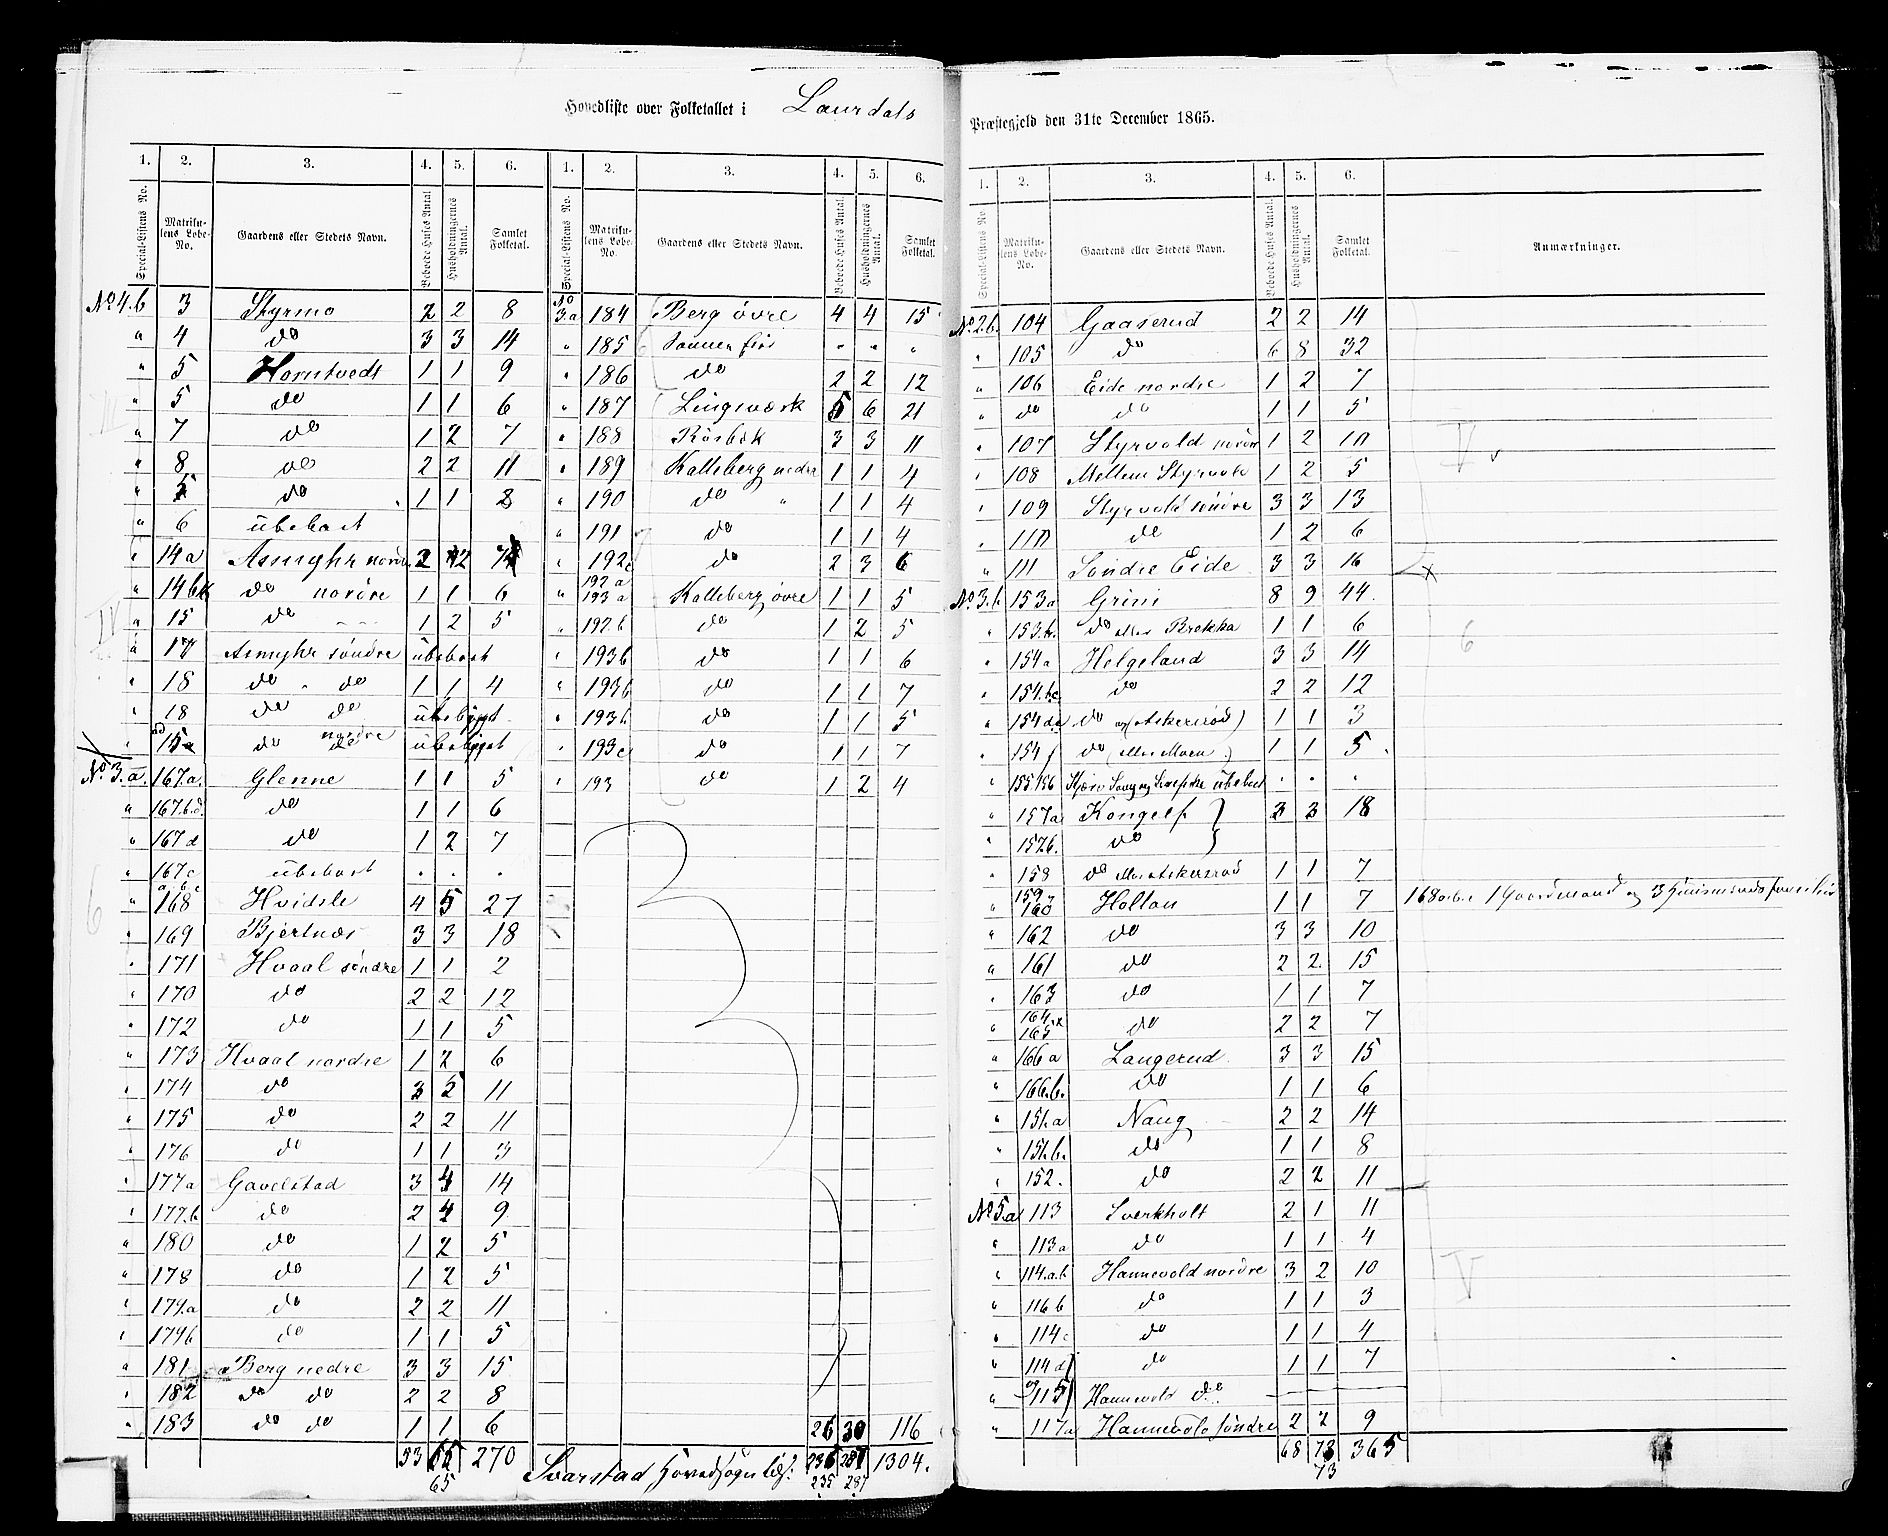 Hovedliste over Folketallet i Laurdals Præstegjeld den 31te December 1865.
1. 2. 3. 4. 5. 6. 1. 2. 3. 4. 5. 6.
Special-Listens No. Matrikulens Løbe-No. Gaardens eller Stedets Navn. Beboede Huses Antal Husholdningernes Antal. Samlet Folketal. Special-Listens No. Matrikulens Løbe-No. Gaardens eller Stedets Navn. Beboede Huses Antal. Husholdningernes Antal. Samlet Folketal.
No 4.b 3 Styrmo 2 2 8
" 4 do 3 3 14
" 5 Horntvedt 1 1 9
" 5 do 1 1 6
" 7 do 1 2 7
" 8 do 2 2 11
" 5 do 1 1 8
" 6 ubeboet
" 14a Asmyhr nordre 2 2 7
" 14b do nordre 1 1 6
" 15 do 1 2 5
" 17 Asmyhr søndre ubeboet
" 18 do do 1 1 4
" 18 do do ubebygget
" 15a do nordre do ubebygget
No 3.a. 167.a. Glenne 1 1 5
" 167.b.d. do 1 1 6
" 167d do 1 2 7
" 167c ubeboet . . .
" a.b.c 168 Hvidsle 4 5 27
" 169 Bjertnæs 3 3 18
" 171 Hvaal søndre 1 1 2
" 170 do 2 2 12
" 172 do 1 1 5
" 173 Hvaal nordre 1 2 6
" 174 do 3 5 11
" 175 do 2 2 11
" 176 do 1 1 3
" 177a Gavelstad 3 4 14
" 177.b do 2 4 9
" 180 do 1 2 5
" 178 do 1 2 5
" 179.a do 2 2 11
" 179b do 1 1 5
" 181 Berg nedre 3 3 15
" 182 do do 2 2 8
" 183 do do 1 1 6
53 65 270
65
No 3.a 184 Berg øvre 4 4 15
" 185 " " "
" 186 do 2 2 12
" 187 Lingsværk 5 6 21
" 188 Røsbæk 3 3 11
" 189 Kalleberg nedre 1 1 4
" 190 do " 1 1 4
" 191 do 1 1 4
" 192c do 2 3 6
" 192a 193a Kalleberg øvre 1 1 5
" 192.b do 1 2 5
" 193b do 1 1 6
" 193b do 1 1 7
" 193b do 1 1 5
" 193c do 1 1 7
" 193 do 1 2 4
3
26 30 116
Svarstad Hovedsogn 236 287 1304.
235 287
1. 2. 3. 4. 5. 6.
Special-Listens No Matrikulens Løbe-No. Gaardens eller Stedets Navn. Beboede Huses Antal. Husholdningernes Antal. Samlet Folketal. Anmærkninger.
No 2.b. 104 Gaaserud 2 2 14
" 105 do 6 8 32
" 106 Eide nordre 1 2 7
" do do 1 1 5
" 107 Styrvold nordre 1 2 10
" 108 Mellem Styrvold 1 2 5
" 109 Styrvold søndre 3 3 13
" 110 do 1 2 6
" 111 Søndre Eide 3 3 16
No 3.b 153a Grini 8 9 44.
" 153.b. do eller Brekka 1 1 6
" 154a Helgeland 3 3 14
" 154.b.c. do 2 2 12
" 154de do og (Askerød) 1 1 3
" 154f do (eller Moen) 1 1 5
" 155.156 ubeboet . . .
" 157a Kongelf 3 3 18
" 157b. do
" 158 do eller Askersrød 1 1 7
" 159 160 Holtan 1 1 7 168a.b.c 1 Gaardmand og 3 Huusmandsfamilier
" 162 do 3 3 10
" 161 do 2 2 15
" 163 do 1 1 7
" 164 165 do 2 2 7
" 166a Langerud 3 3 15
" 166.b. do 1 1 6
" 151.a Naug 2 2 14
" 151.b. do 1 1 8
" 152. do 2 2 11
No 5.a 113 Sverkholt 2 1 11
" 113a do 1 1 4
" 114.a.b Hannevold nordre 3 2 10
" 116b do 1 1 3
" 114c do 1 1 4
" 114d do 1 1 7
" og 115 Hannevold do
" 117a Hannevold søndre 2 2 9
68 73 365
73